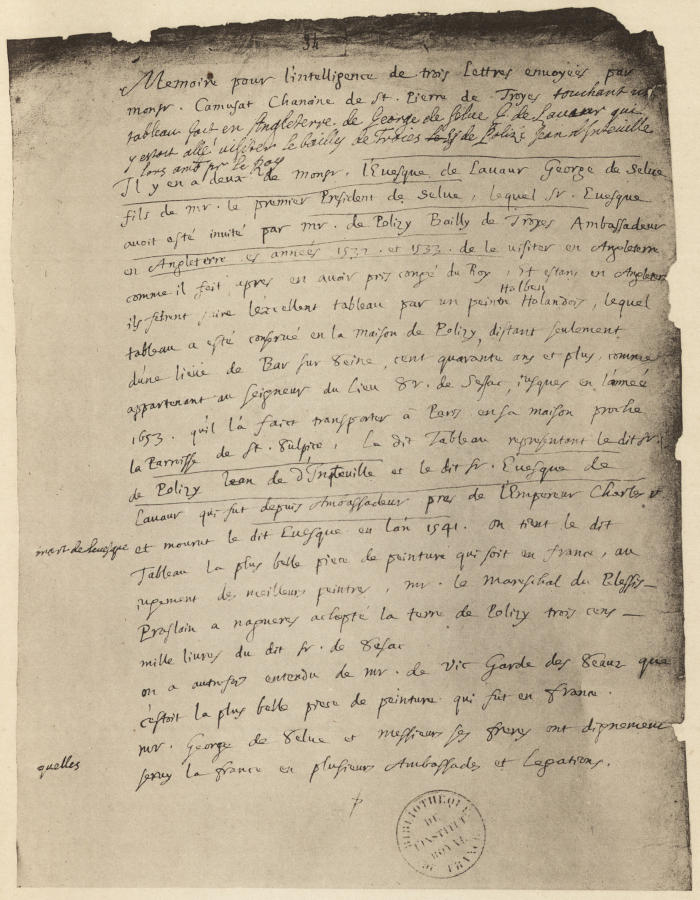 Memoire pour l'intelligence de trois Lettres envoyées par
monsr. Camusat Chanoine de St. Pierre de Troyes touchant un
tableau fait en Angleterre de George de Selve E. de Lavaur qui
y estoit allé visiter le bailly de Troies de Polizi Jean d'Inteville
lors amb. pr le Roy
Il y en a deux de monsr. l'Evesque de Lavaur George de Selve
fils de mr. le premier President de Selve, lequel sr. Evesque
avoit esté invité par mr. de Polizy Bailly de Troyes Ambassadeur
en Angleterre es années 1532. et 1533. de le visiter en Angleterre
comme il feit apres en avoir pris congé du Roy, Et estans en Angleterre
Holben
ils feirent faire l'excellent tableau par un peintre Holandois, lequel
tableau a esté conservé en la maison de Polizy, distant seulement
d'une lieüe de Bar sur Seine, cent quarante ans et plus, comme
appartenant au seigneur du lieu Sr. de Sessac, jusques en l'année
1653. qu'il l'a faict transporter à Paris en sa maison proche
la Parroisse de St. Sulpice, Le dit Tableau representant le dit sr.
de Polizy Jean de d'Inteville et le dit sr. Evesque de
Lavaur qui fut depuis Ambassadeur pres de l'Empereur Charles
mort de l'evesque
et mourut le dit Evesque en l'an 1541. on tient le dit
Tableau la plus belle piece de peinture qui soit en france, au
jugement des meilleurs peintres, mr. le mareschal du Plessis
Praslain a nagueres achepté la terre de Polizy trois cens
mille livres du dit sr. de Sesac
on a autrefois entendu de mr. de Vic Garde des Seaux que
c'estoit la plus belle piece de peinture qui fut en france.
mr. George de Selve et messieurs ses freres ont dignement
quelles
servy la france en plusieurs Ambassades et Legations.
BIBLIOTHEQUE
DE
L'INSTITUT
ROYAL
DE FRANCE